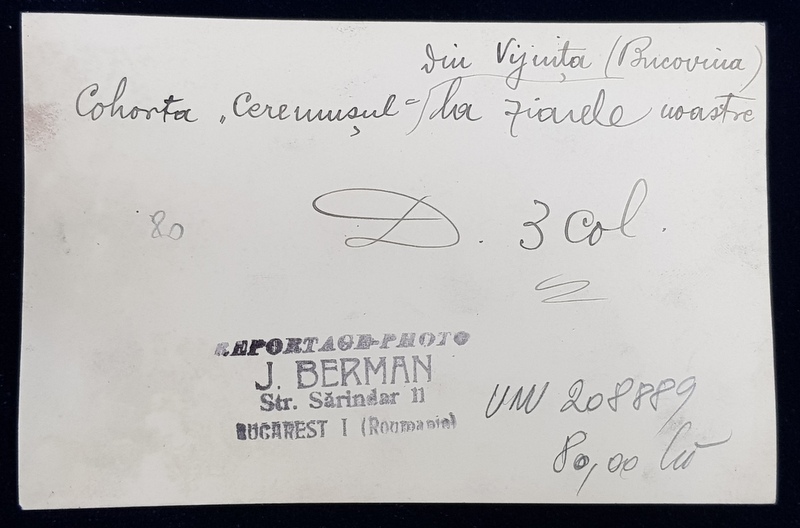 din Vijnița (Bucovina)
Cohorta „Ceremușul" la ziarele noastre
80
D. 3 col.
REPORTAGE-PHOTO
J. BERMAN
Str. Sărindar 11
BUCAREST I (Roumanie)
208889
80,00